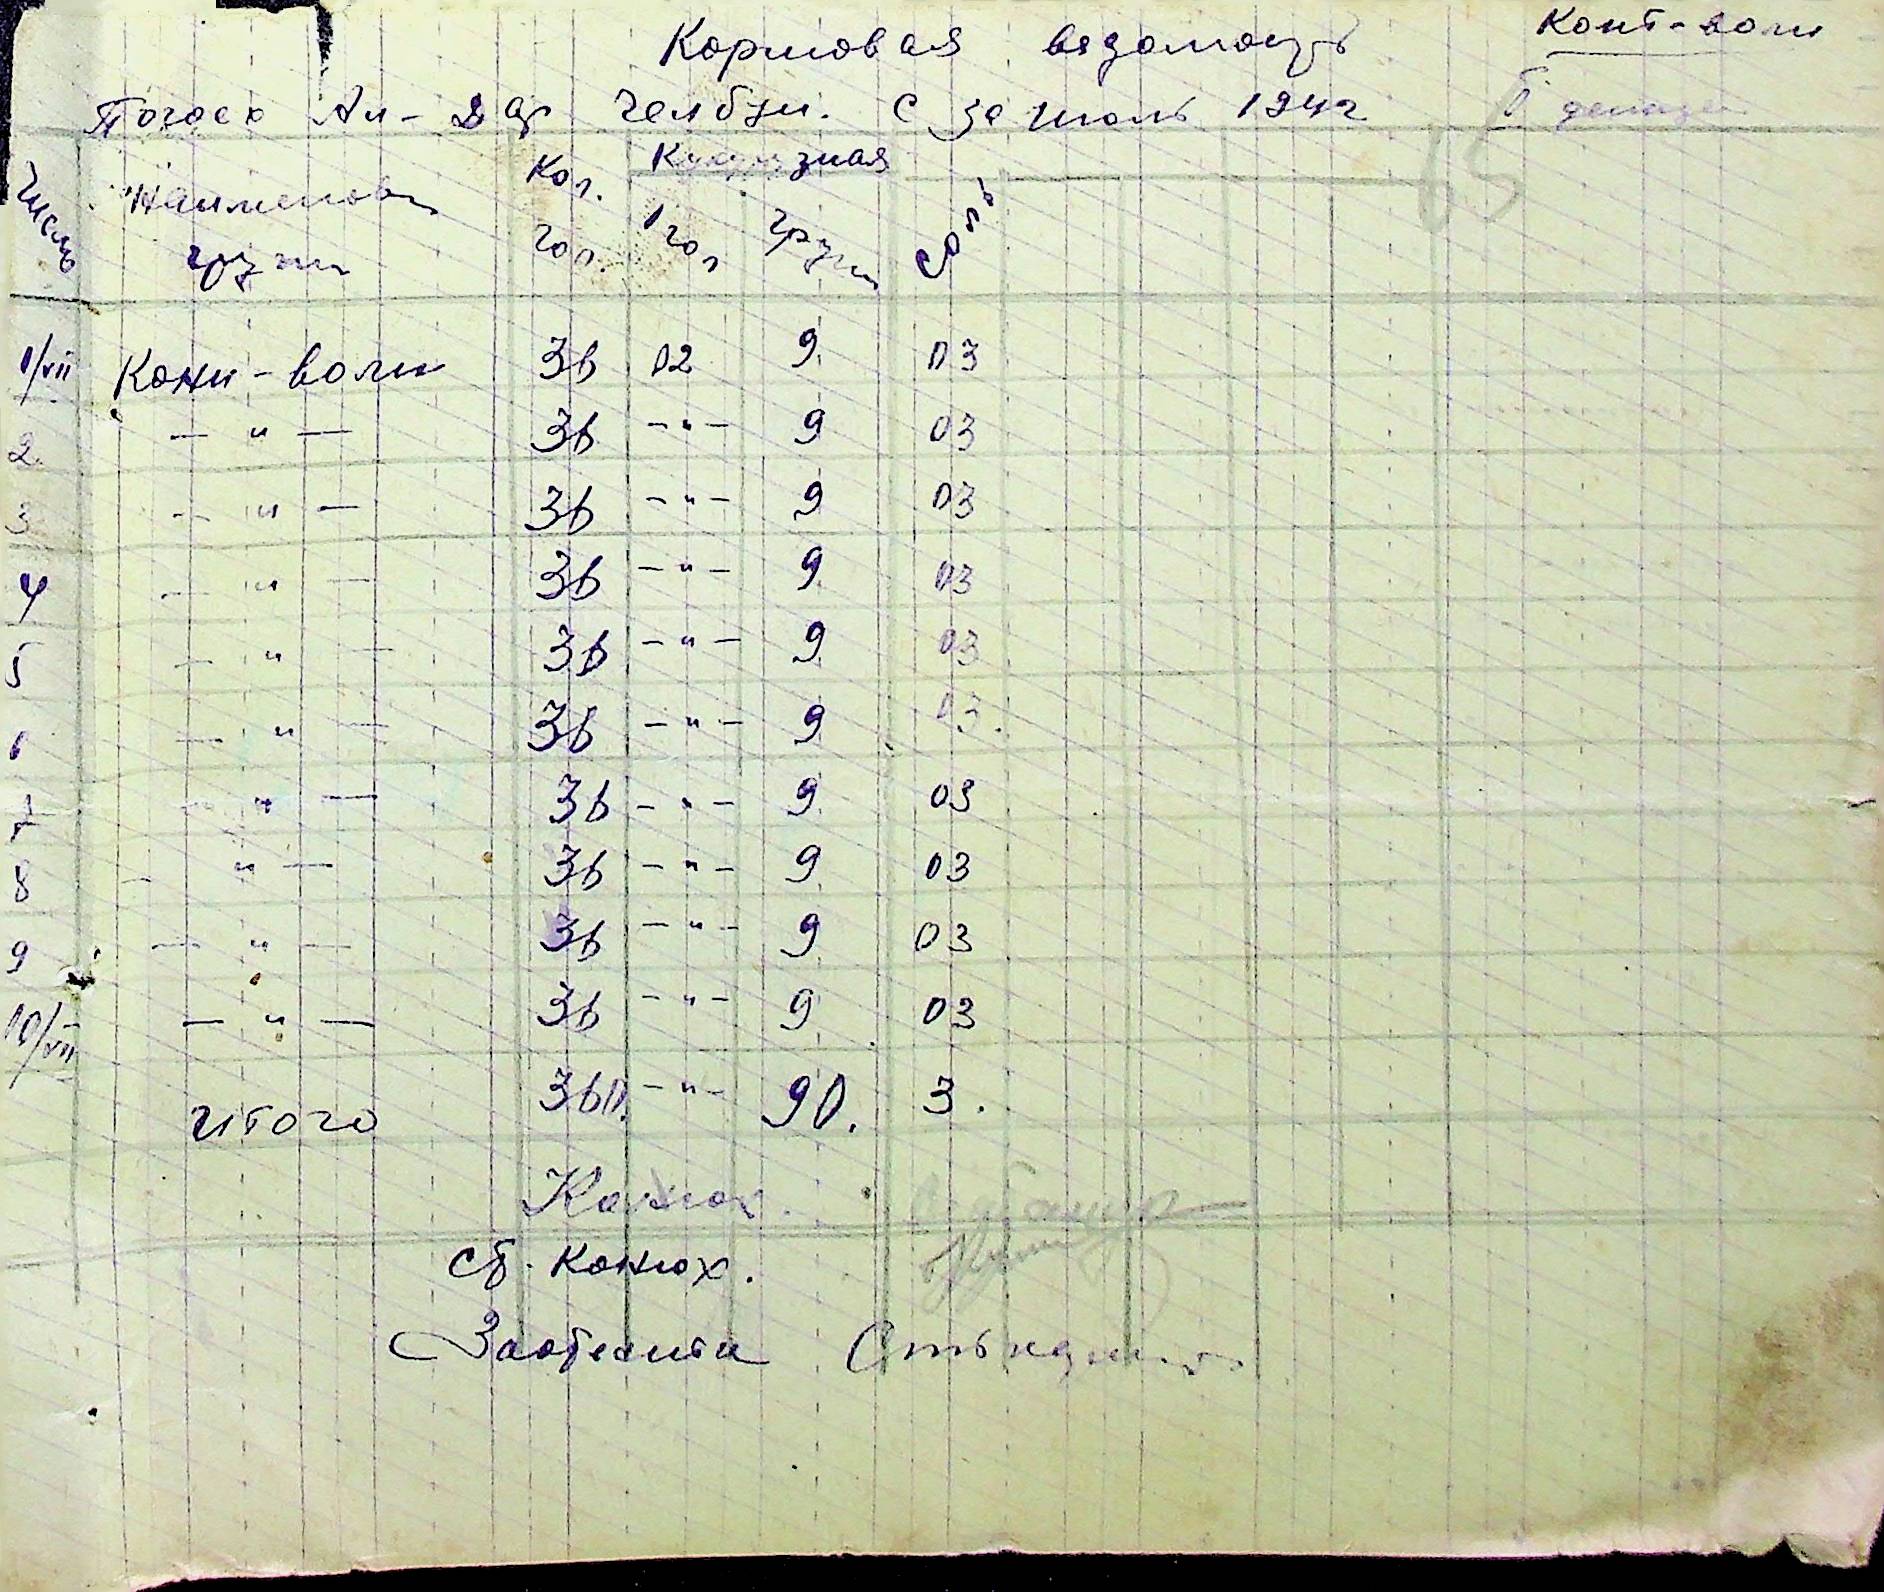 Конт-воли
Кормовая ведомость
за июль 194 г
65
Число Наименов групп Кол. гол. Кукурузная 1 гол групп соль
1/VII Кони-воли 36 02 9 03
2 — " — 36 — " — 9 03
3 — " — 36 — " — 9 03
4 — " — 36 — " — 9 03
5 — " — 36 — " — 9 03
6 — " — 36 — " — 9 03
7 — " — 36 — " — 9 03
8 — " — 36 — " — 9 03
9 — " — 36 — " — 9 03
10/VII — " — 36 — " — 9 03
итого 360. — " — 90. 3.
Конюх.
ст. конюх.